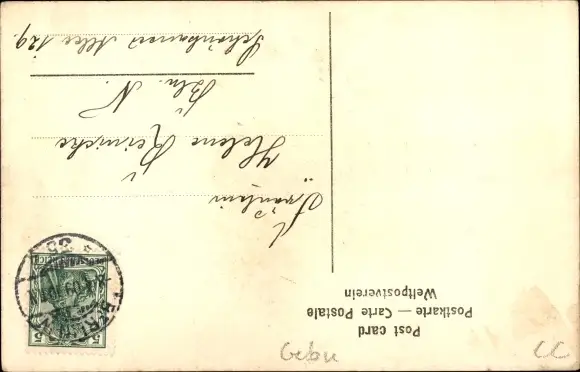 Post card
Postkarte — Carte Postale
Weltpostverein
Fräulein
Helene Reinicke
Bln. N.
Schönhauser Allee 129.
BERLIN
5
5
Gebu
CC